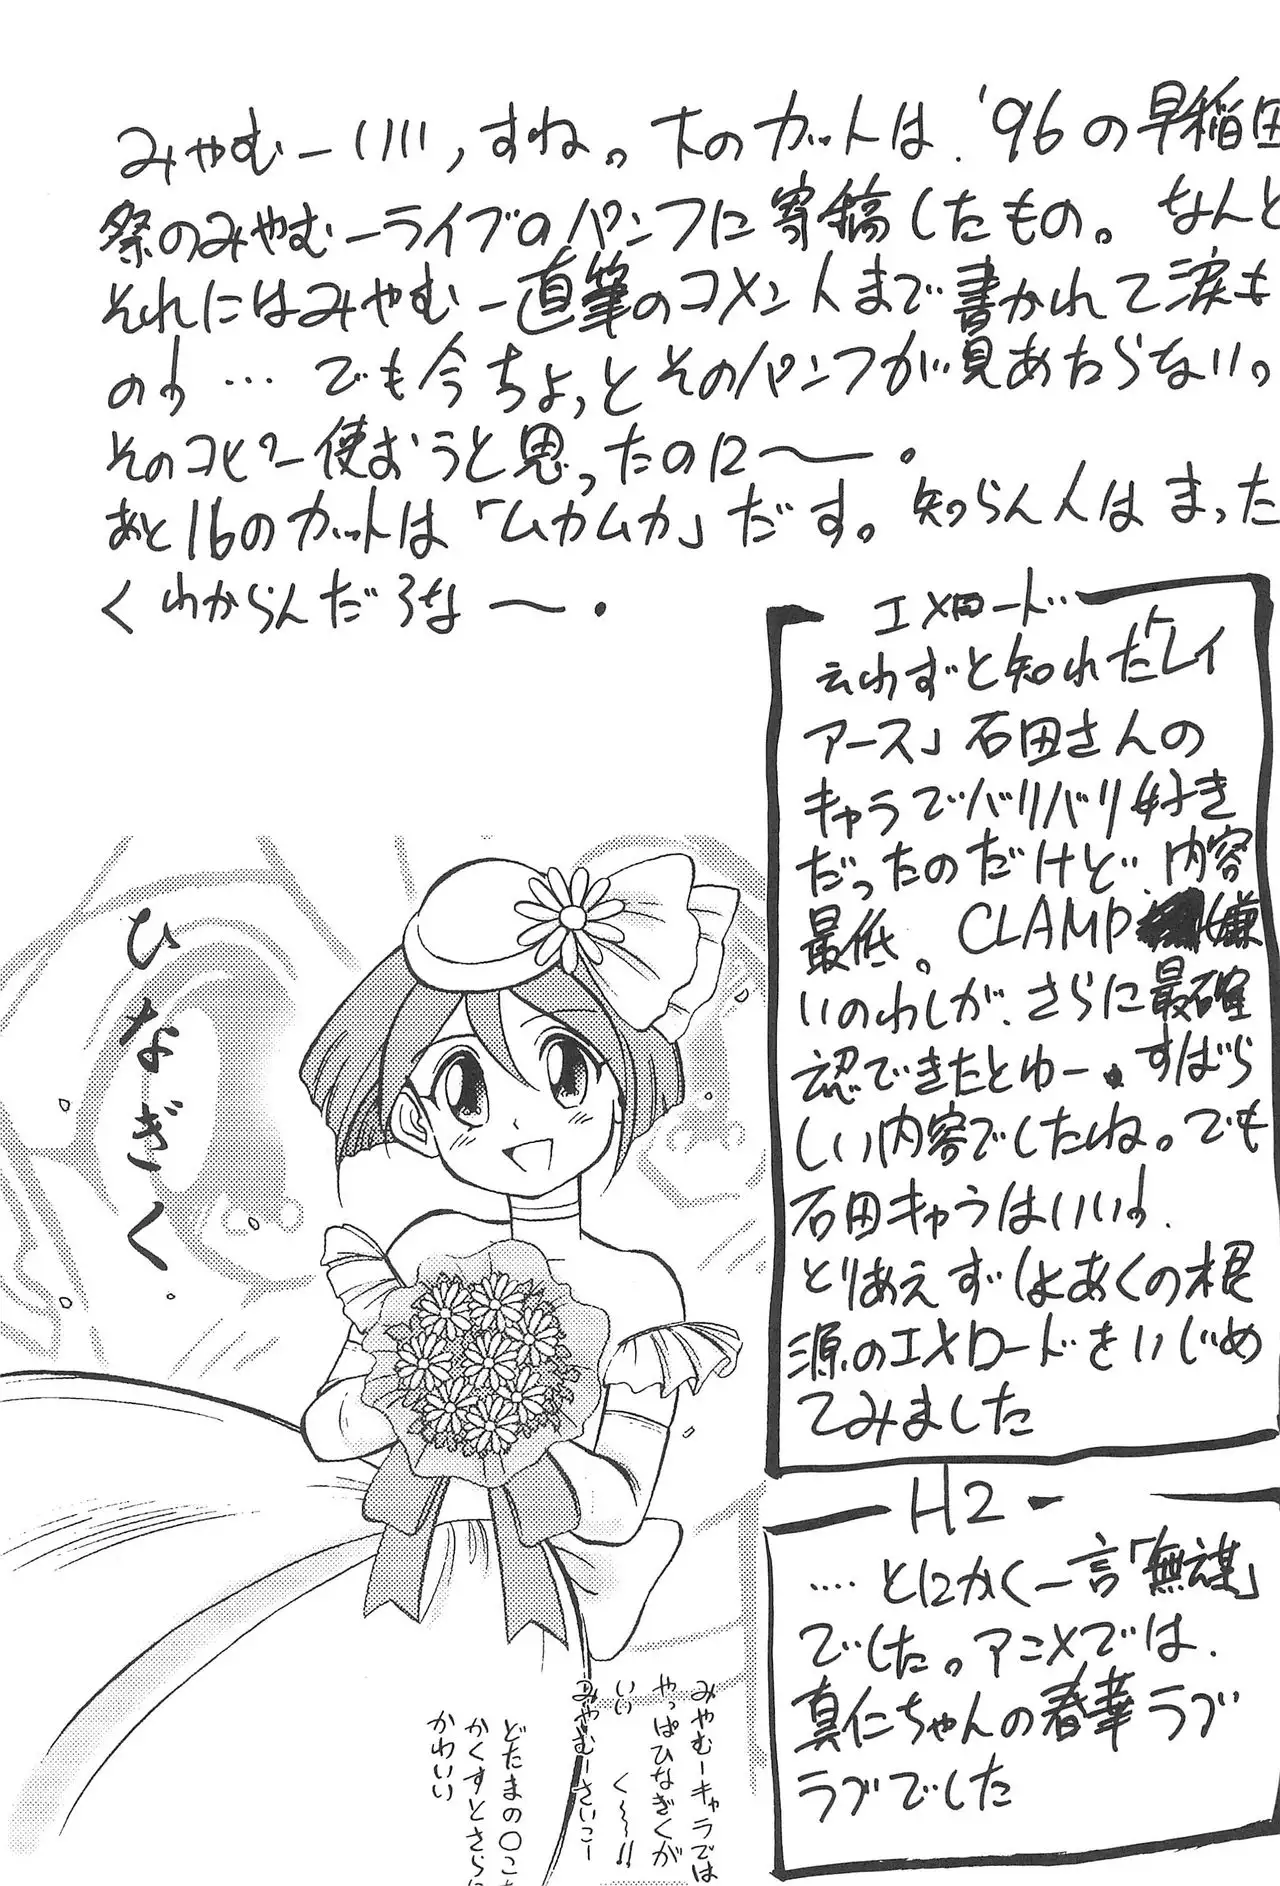 みやむーいい,すね。下のカットは、'96の早稲田
祭のみやむーライブのパンフに寄稿したもの。なんと
それにはみやむー直筆のコメントまで書かれて涙も
のっす … でも今ちょっとそのパンフが見あたらない。
そのコピー使おうと思ったのに〜。
あと16のカットは「ムカムカ」だす。知らん人はまった
くわからんだろな〜。
エメロード
云わずと知れた「レイ
アース」石田さんの
キャラでバリバリ好き
だったのだけど、内容
最低。CLAMP嫌
いのわしが、さらに最確
認できたとゆー。すばら
しい内容でしたね。でも
石田キャラはいいっす。
とりあえずしょあくの根
源のエメロードをいじめ
てみました
H2
‥‥とにかく一言「無謀」
でした。アニメでは、
真仁ちゃんの春華ラブ
ラブでした
ひなぎく
みやむーキャラでは
やっぱひなぎくが
いい く〜!!
みやむーさいこー
どたまの〇こち
かくすとさらに
かわいい